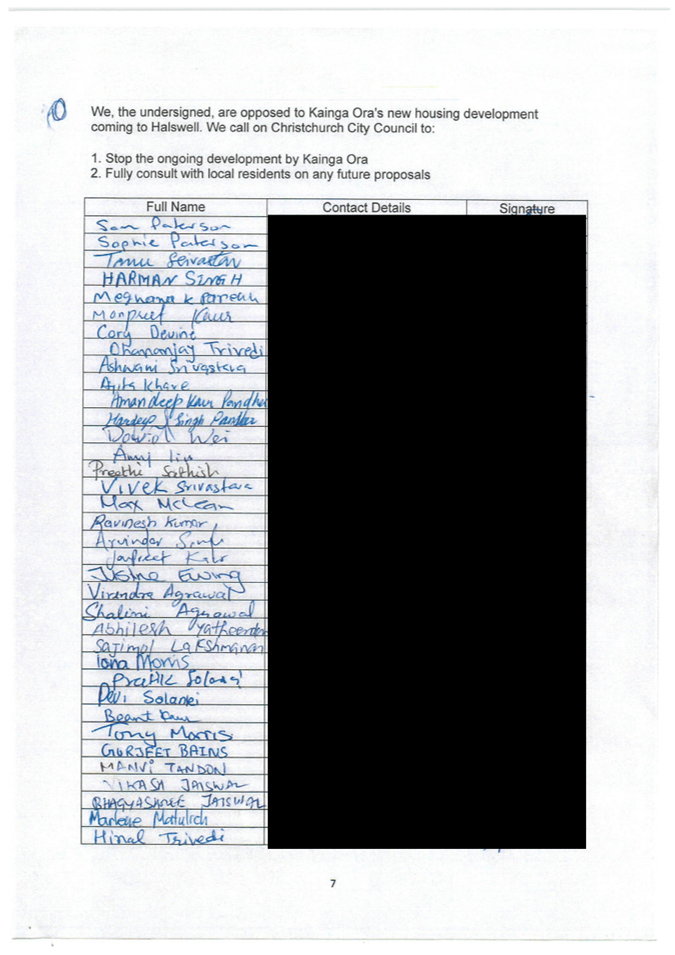 10
We, the undersigned, are opposed to Kainga Ora's new housing development
coming to Halswell. We call on Christchurch City Council to:
1. Stop the ongoing development by Kainga Ora
2. Fully consult with local residents on any future proposals
Full Name Contact Details Signature
Sam Paterson
Sophie Paterson
Tanu
HARMAN SINGH
Meghana K Parekh
Monpreet Kaur
Cory Devine
Dhananjay Trivedi
Ashwani Srivastava
Khare
Amandeep Kaur Pandher
Hardeep Singh Pandher
Wei
Amy
Preethi Sathish
Vivek Srivastava
Max McLean
Ravinesh Kumar
Arvinder
Kaur
Justine Ewing
Virendra Agrawal
Shalini Agrawal
Abhilesh Yatheendra
Sajimol Lakshmanan
Iona Morris
Pratik Solanki
Devi Solanki
Beant Kaur
Tony Morris
GURJEET BAINS
MANVI TANDON
VIKASH JAISWAL
BHAGYASHREE JAISWAL
Marlene Matulich
Hinal Trivedi
7